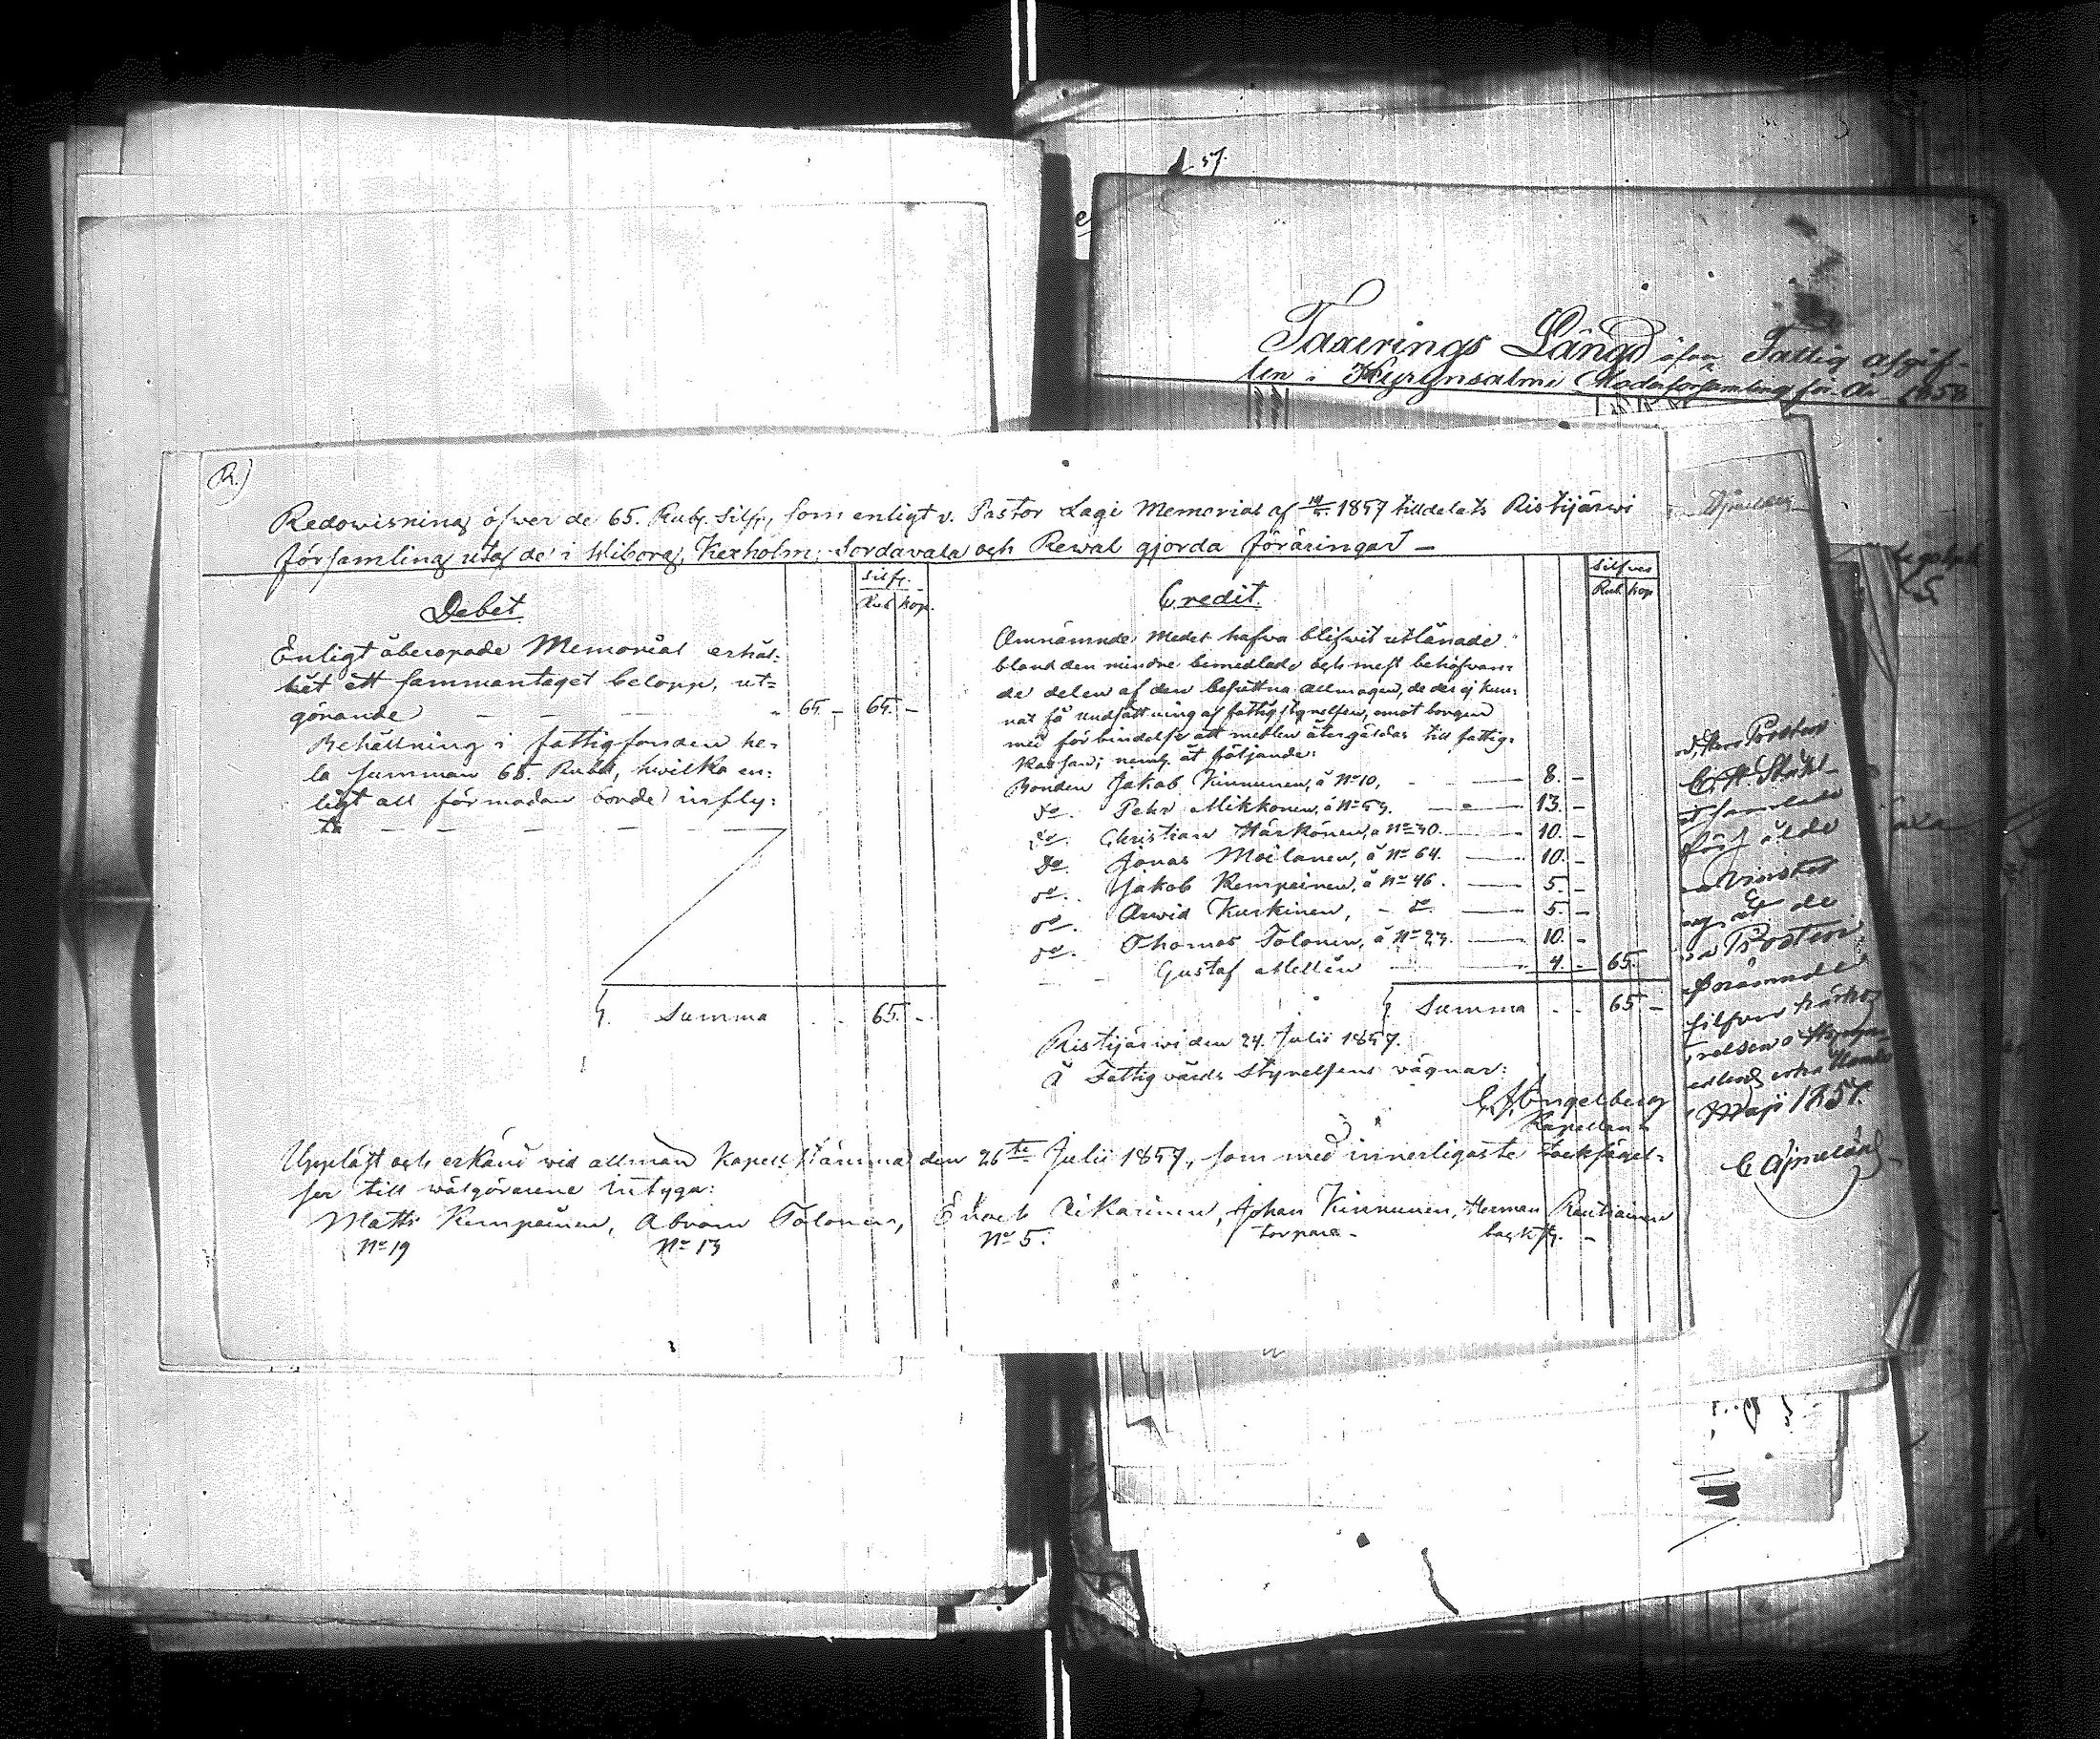 d. 57.
Taxerings Längd öfver Fattig afgif-
ten i Hyrynsalmi Moderförsamling för År 1858
R.)
Redowisning öfver de 65. Rub. Silfr, som enligt v. Pastor Lagi Memorial af 1857 tilldelats Ristijärwi
församling utaf de i Wiborg, Kexholm, Sordavala och Rewal gjorda föräringar —
Debet
Silfr.
Rub. kop.
Enligt åberopade Memorial erhål-
lit ett sammantaget belopp, ut-
görande — — — 65. — 65. —
Behållning i fattigfonden he-
la summan 65. Rubel, hwilka en-
ligt all förmodan borde infly-
ta — — — — —
S. Summa . . 65. —
Credit.
Silfver
Rub. kop
Omnämnde Medel hafwa blifwit utlånade
bland den mindre bemedlade och mest behöfwan-
de delen af den besuttna allmogen, de der ej kun-
nat få undsättning af fattigstyrelsen, emot borgen
med förbindelse att medlen återgäldas till fattig-
kassan; neml. åt följande:
Bonden Jakob Kinnunen, å No 10, — 8. —
do. Pehr Mikkonen, å No 53. — 13. —
do. Christian Härkönen, å No 30. — 10. —
do. Jonas Moilanen, å No 64. — 10. —
do. Jakob Kemppainen, å No 46. — 5. —
do. Arwid Kurkinen, — do. — 5. —
do. Thomas Tolonen, å No 23. — 10. —
Gustaf Mellén — 4. — 65.
S. Summa . . 65 —
Ristijärwi den 24. Julii 1857.
Å Fattigvårds Styrelsens vägnar:
C. J. Engelberg
Kapellan
Uppläst och erkänd vid allmän Kapell Stämma den 26te Julii 1857, som med innerligaste tacksägel-
ser till wälgörarene intyga:
Matts Kemppainen, Abram Tolonen, Enoch Nikarinen, Johan Kinnunen, Herman Rautiainen
No 19 No 13 No 5. torpare — backst. —
Herr Prosten
C. H. Ståhl-
samlade
de
Prosten
silfver
Maji 1857.